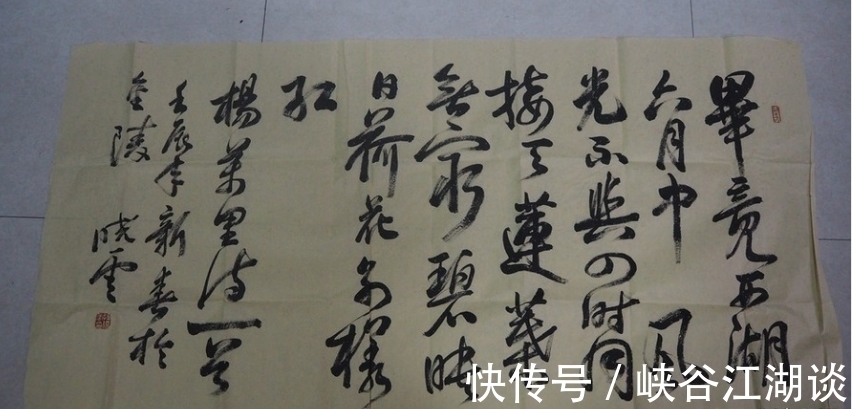 畢竟西湖
六月中風
光不與四時同
接天蓮葉
無窮碧映
日荷花別樣
紅
楊萬里诗一首
壬辰年新春於
金陵 晓雲
快传号 / 峡谷江湖谈